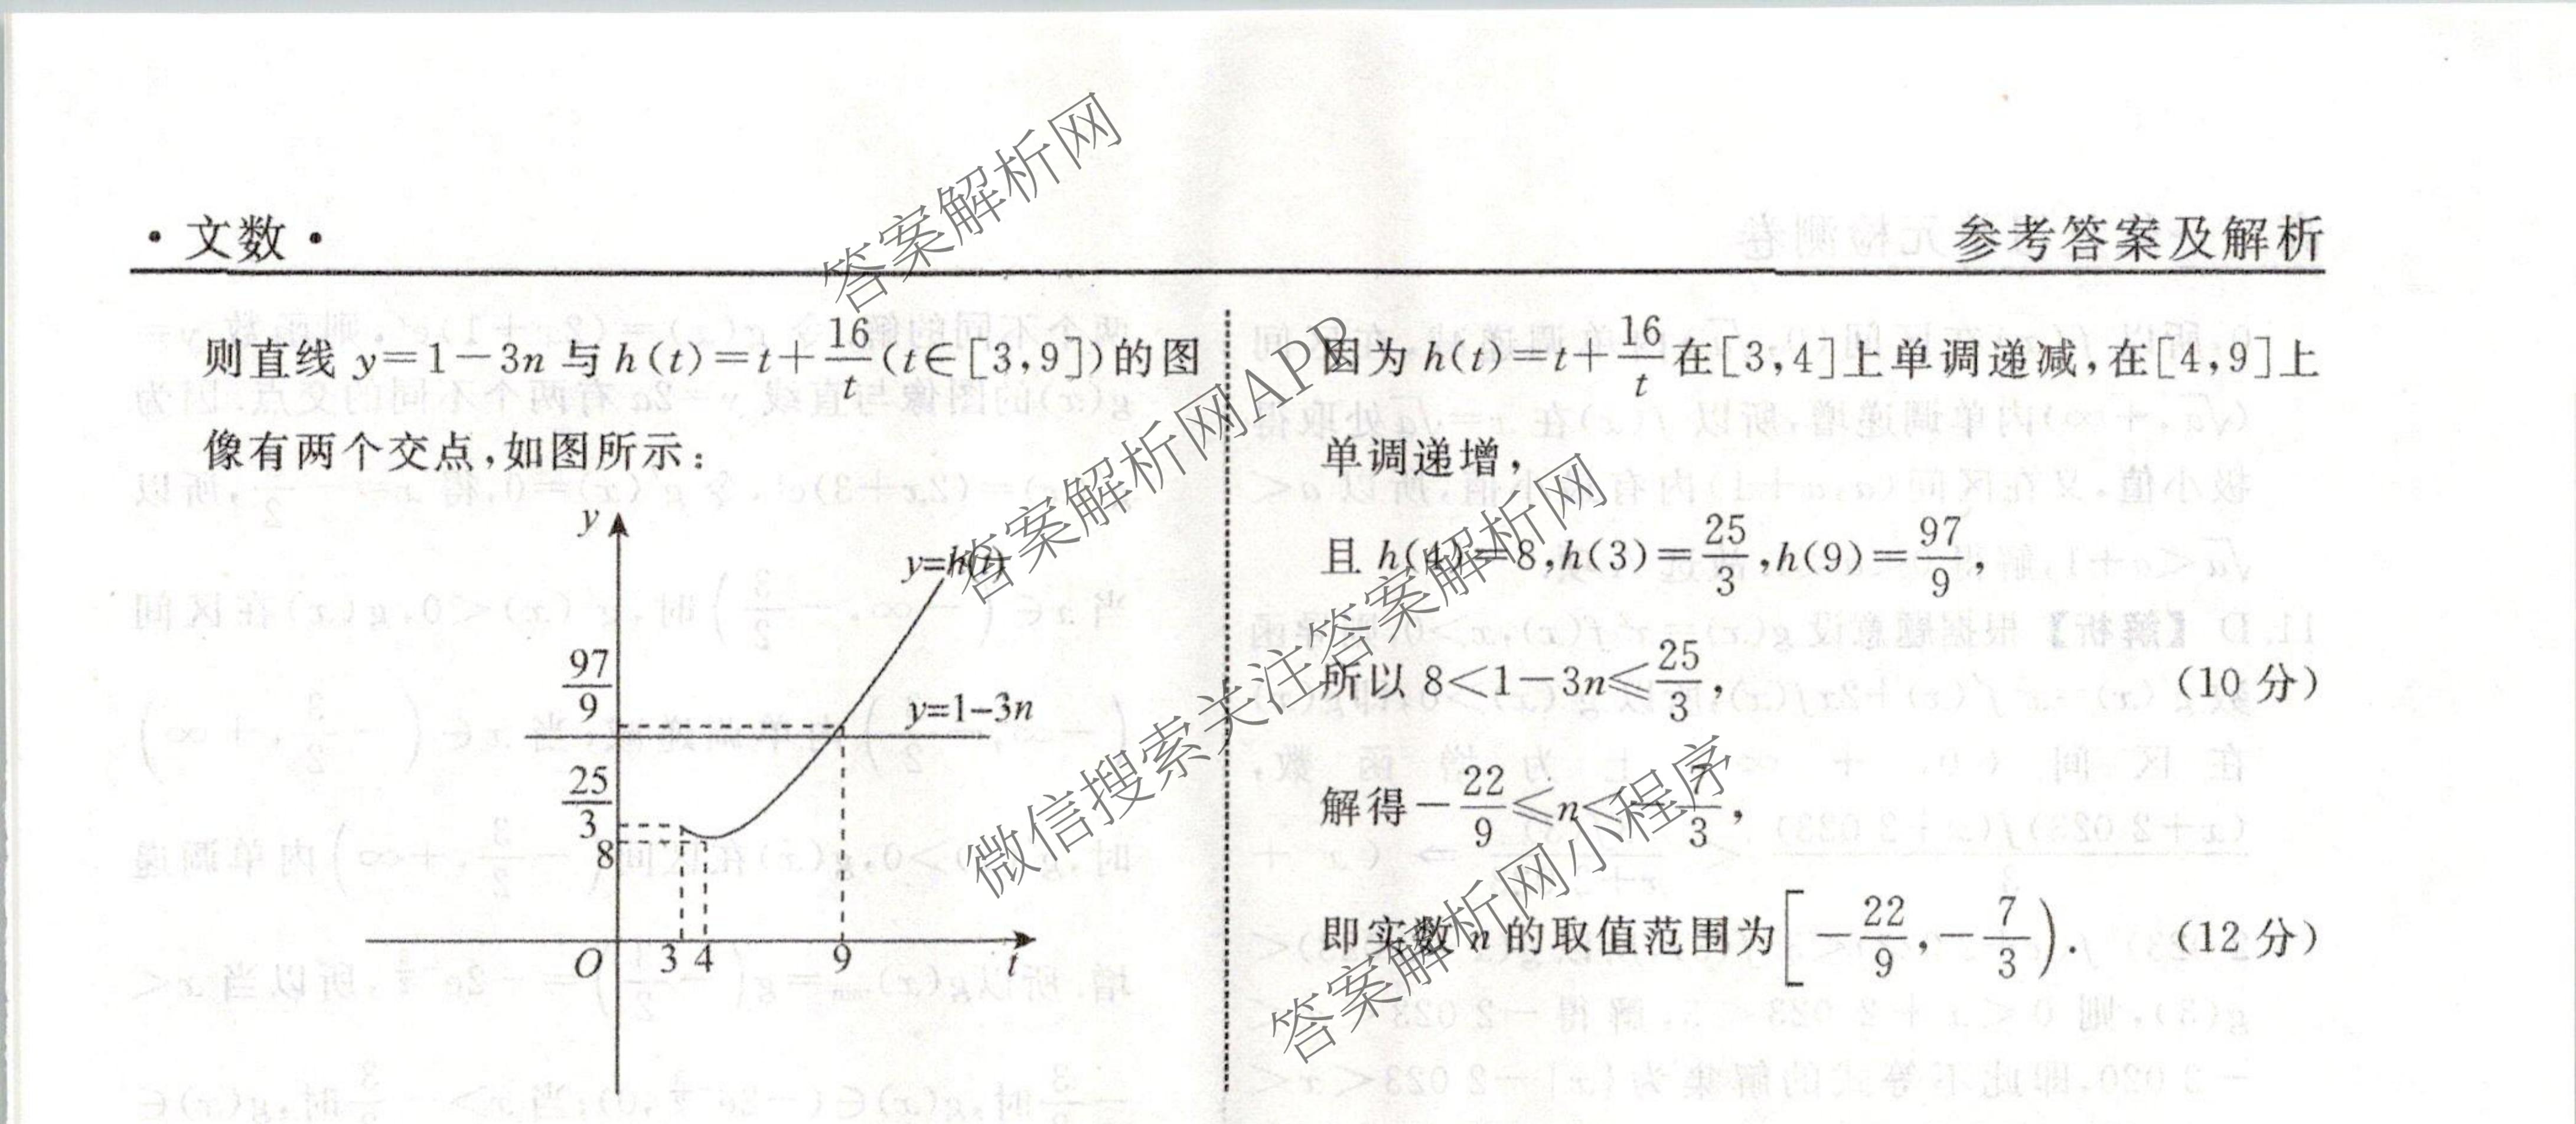 ·文数·
参考答案及解析
则直线 y=1-3n 与 h(t)=t+16/t(t∈[3,9])的图
像有两个交点,如图所示:
y
y=h(t)
97/9
y=1-3n
25/3
8
O
3
4
9
t
因为 h(t)=t+16/t在[3,4]上单调递减,在[4,9]上
单调递增,
且 h(4)=8,h(3)=25/3,h(9)=97/9,
所以 8<1-3n⩽25/3, (10 分)
解得-22/9⩽n<-7/3,
即实数 n 的取值范围为[-22/9,-7/3). (12 分)
答案解析网
答案解析网APP
微信搜索关注答案解析网
答案解析网小程序